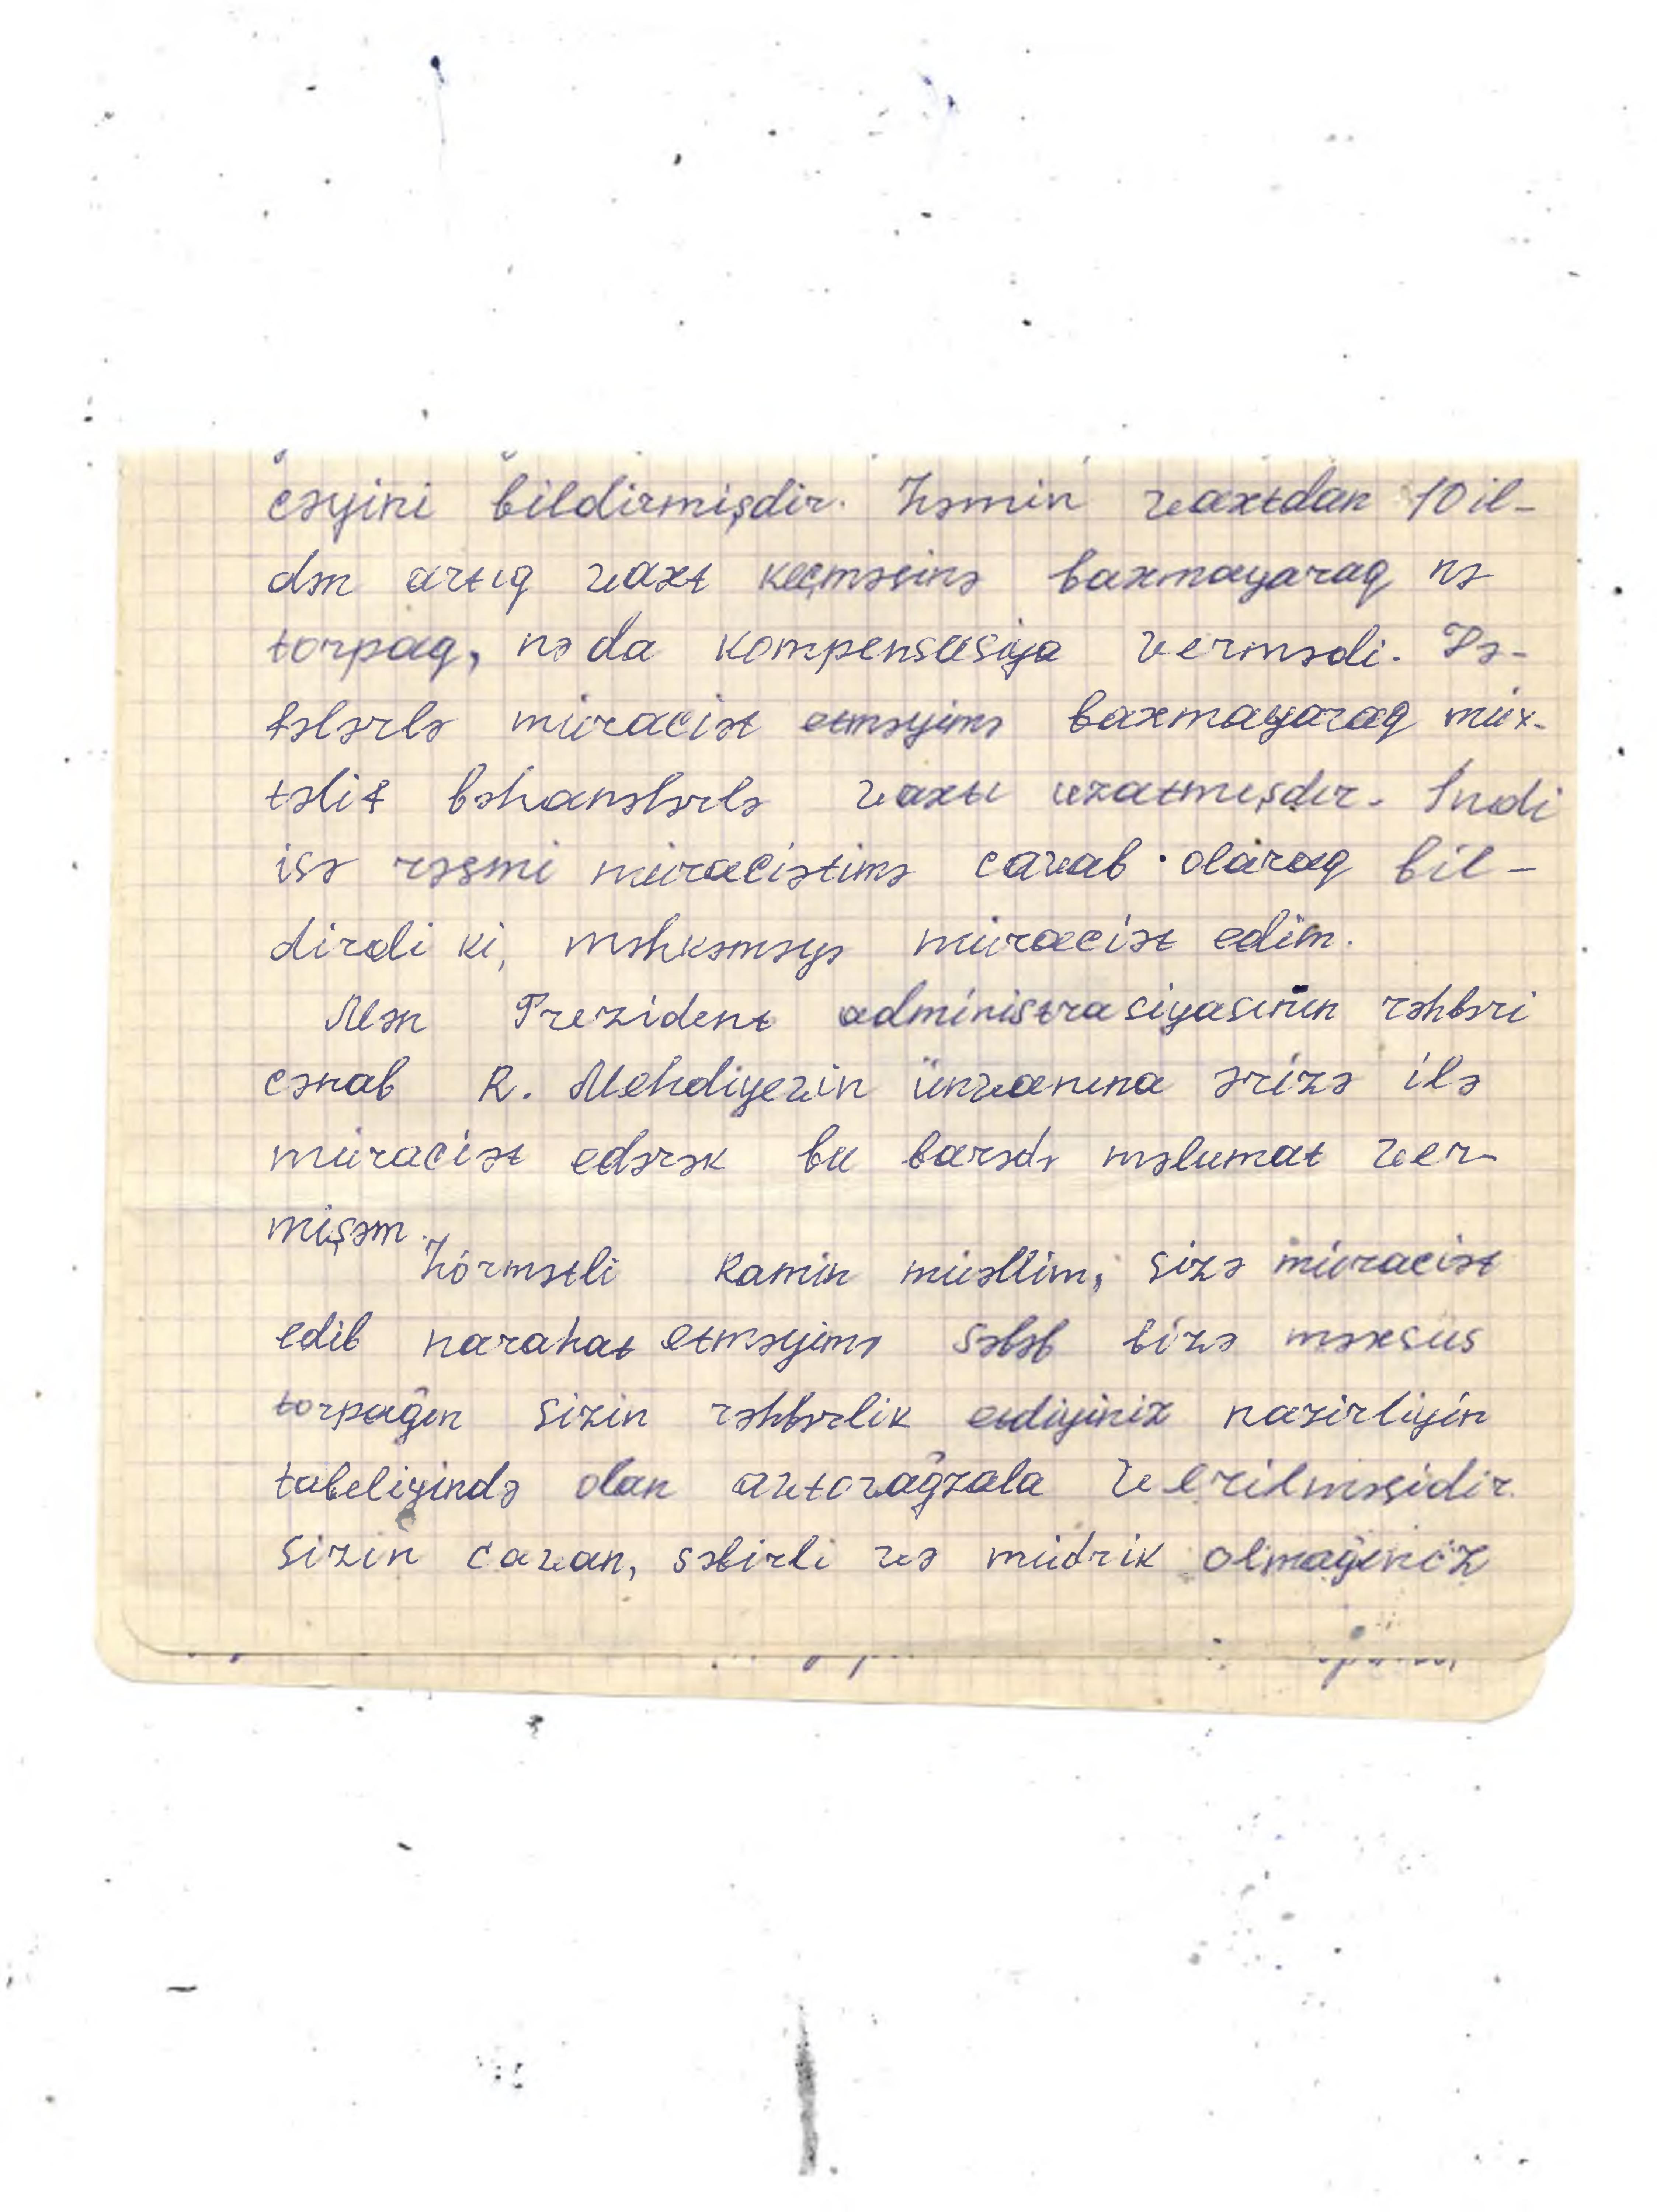 cəyini bildirmişdir. Həmin vaxtdan 10 il-
dən artıq vaxt keçməsinə baxmayaraq nə
torpaq, nə da kompensasiya vermədi. Də-
fələrlə müraciət etməyimə baxmayaraq müx-
təlif bəhanələrlə vaxtı uzatmışdır. İndi
isə rəsmi müraciətimə cavab olaraq bil-
dirdi ki, məhkəməyə müraciət edim.
Mən Prezident administrasiyasının rəhbəri
cənab R. Mehdiyevin ünvanına ərizə ilə
müraciət edərək bu barədə məlumat ver-
mişəm.
Hörmətli Ramin müəllim, sizə müraciət
edib narahat etməyimə səbəb bizə məxsus
torpağın sizin rəhbərlik etdiyiniz nazirliyin
tabeliyində olan avtovağzala verilməsidir.
Sizin cavan, səbirli və müdrik olmağınız